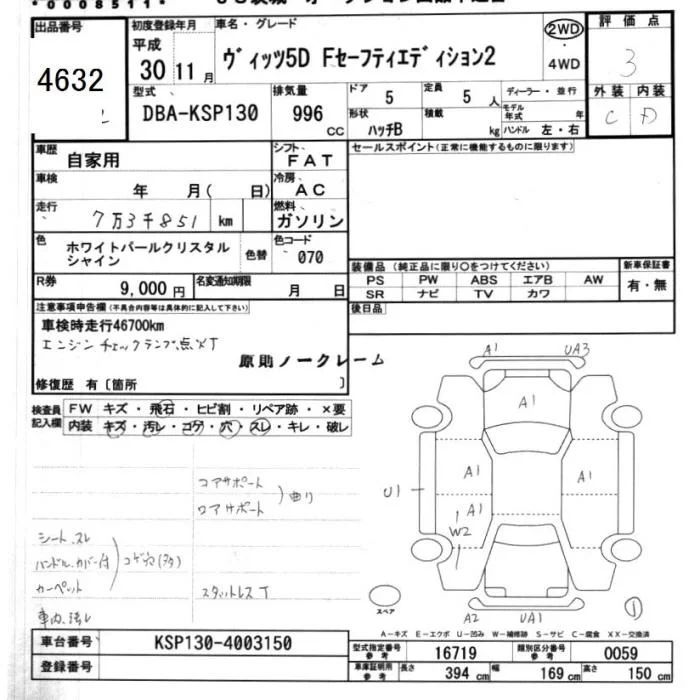 *0008511*
出品番号
4632
初度登録年月
平成
30 11 月
車名・グレード
ヴィッツ5D Fセーフティエディション2
2WD
4WD
評価点
3
外装 内装
C D
型式
DBA-KSP130
排気量
996
CC
ドア
5
定員
5 人
ディーラー・並行
モデル年式 年
形状
ハッチB
積載
kg
ハンドル 左・右
車歴
自家用
シフト
FAT
セールスポイント(正常に機能するものに限ります)
車検
年 月( 日)
冷房
AC
走行
7万3千851 km
燃料
ガソリン
色
ホワイトパールクリスタル
シャイン
色替
色コード
070
装備品 (純正品に限り○をつけてください)
PS PW ABS エアB AW
SR ナビ TV カワ
新車保証書
有・無
R券
9,000 円
名変通知期限
月 日
後日品
注意事項申告欄(不具合内容等は具体的に記入して下さい)
車検時走行46700km
エンジンチェックランプ点灯
原則ノークレーム
修復歴 有〔箇所 〕
検査員
記入欄
FW キズ・飛石・ヒビ割・リペア跡・×要
内装 キズ・汚レ・コゲ・穴・スレ・キレ・破レ
コアサポート
ロアサポート
曲り
シート、スレ
ハンドル、カバー付
カーペット
コゲ穴(多)
スタットレスT
A1 UA3
A1
A1 A1
U1
A1
W2
A2 UA1
スペア
1
A-キズ E-エクボ U-凹み W-補修跡 S-サビ C-腐食 XX-交換済
車台番号
KSP130-4003150
登録番号
型式指定番号
参考
16719
類別区分番号
参考
0059
車庫証明用
参考
長さ
394 cm
幅
169 cm
高さ
150 cm